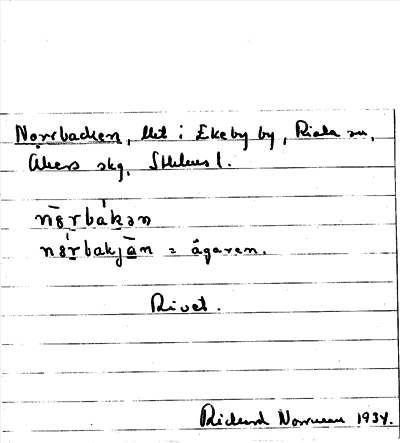 Norrbacken, lht i Ekeby by, Riala sn,
Åkers skg, Sthlms l.
nǫ̈rbákən
nǫ̈́rbakjān = ägaren.
Rivet.
Rickard Norrman 1934.